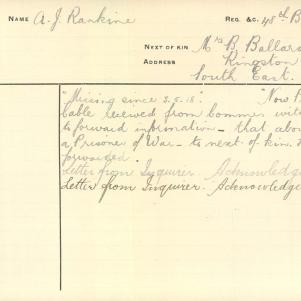 NAME A. J. Rankine REG. &C. 48th B
NEXT OF KIN Mrs B. Ballar
ADDRESS Kingston
South East.
"Missing since 3.5.18." "Now P
Cable received from Commrs with
to forward information - that abo
a Prisoner of War - to next of kin.
forwarded"
Letter from Inquirer. Acknowledge
Letter from Inquirer. Acknowledge